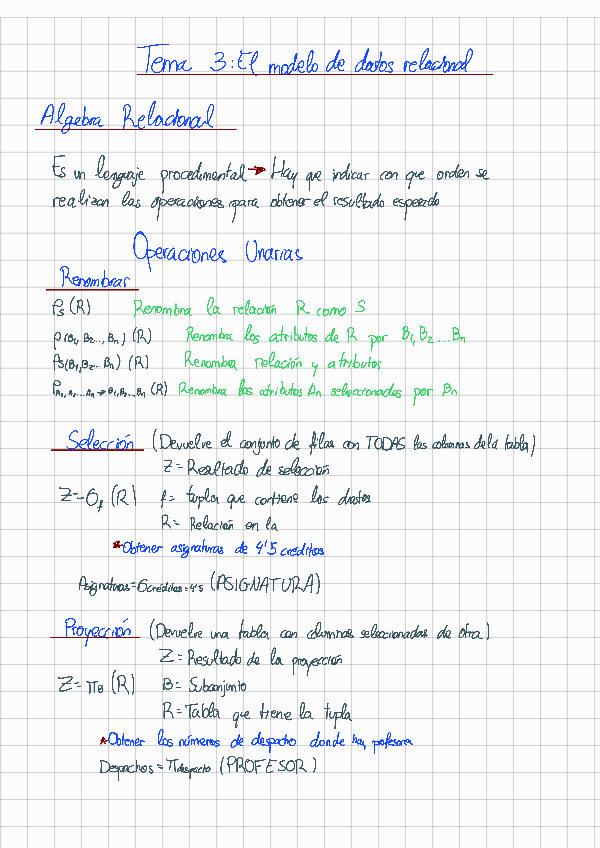 Tema 3: El modelo de datos relacional
Algebra Relacional
Es un lenguaje procedimental → Hay que indicar con que orden se
realizan las operaciones para obtener el resultado esperado
Operaciones Unarias
Renombrar
ρs (R) Renombra la relación R como S
ρ(B1, B2... Bn) (R) Renombra los atributos de R por B1, B2 ... Bn
ρs(B1, B2... Bn) (R) Renombra relación y atributos
ρA1, A2,... An → B1, B2... Bn (R) Renombra los atributos An seleccionados por Bn
Selección (Devuelve el conjunto de filas con TODAS las columnas de la tabla)
Z = Resultado de selección
Z = σf (R) f = tupla que contiene los datos
R = Relación en la
*Obtener asignaturas de 4'5 creditos
Asignaturas = σcréditos = 4'5 (ASIGNATURA)
Proyección (Devuelve una tabla con columnas seleccionadas de otra)
Z = Resultado de la proyección
Z = πB (R) B = Subconjunto
R = Tabla que tiene la tupla
*Obtener los números de despacho donde hay profesores
Despachos = πdespacto (PROFESOR)